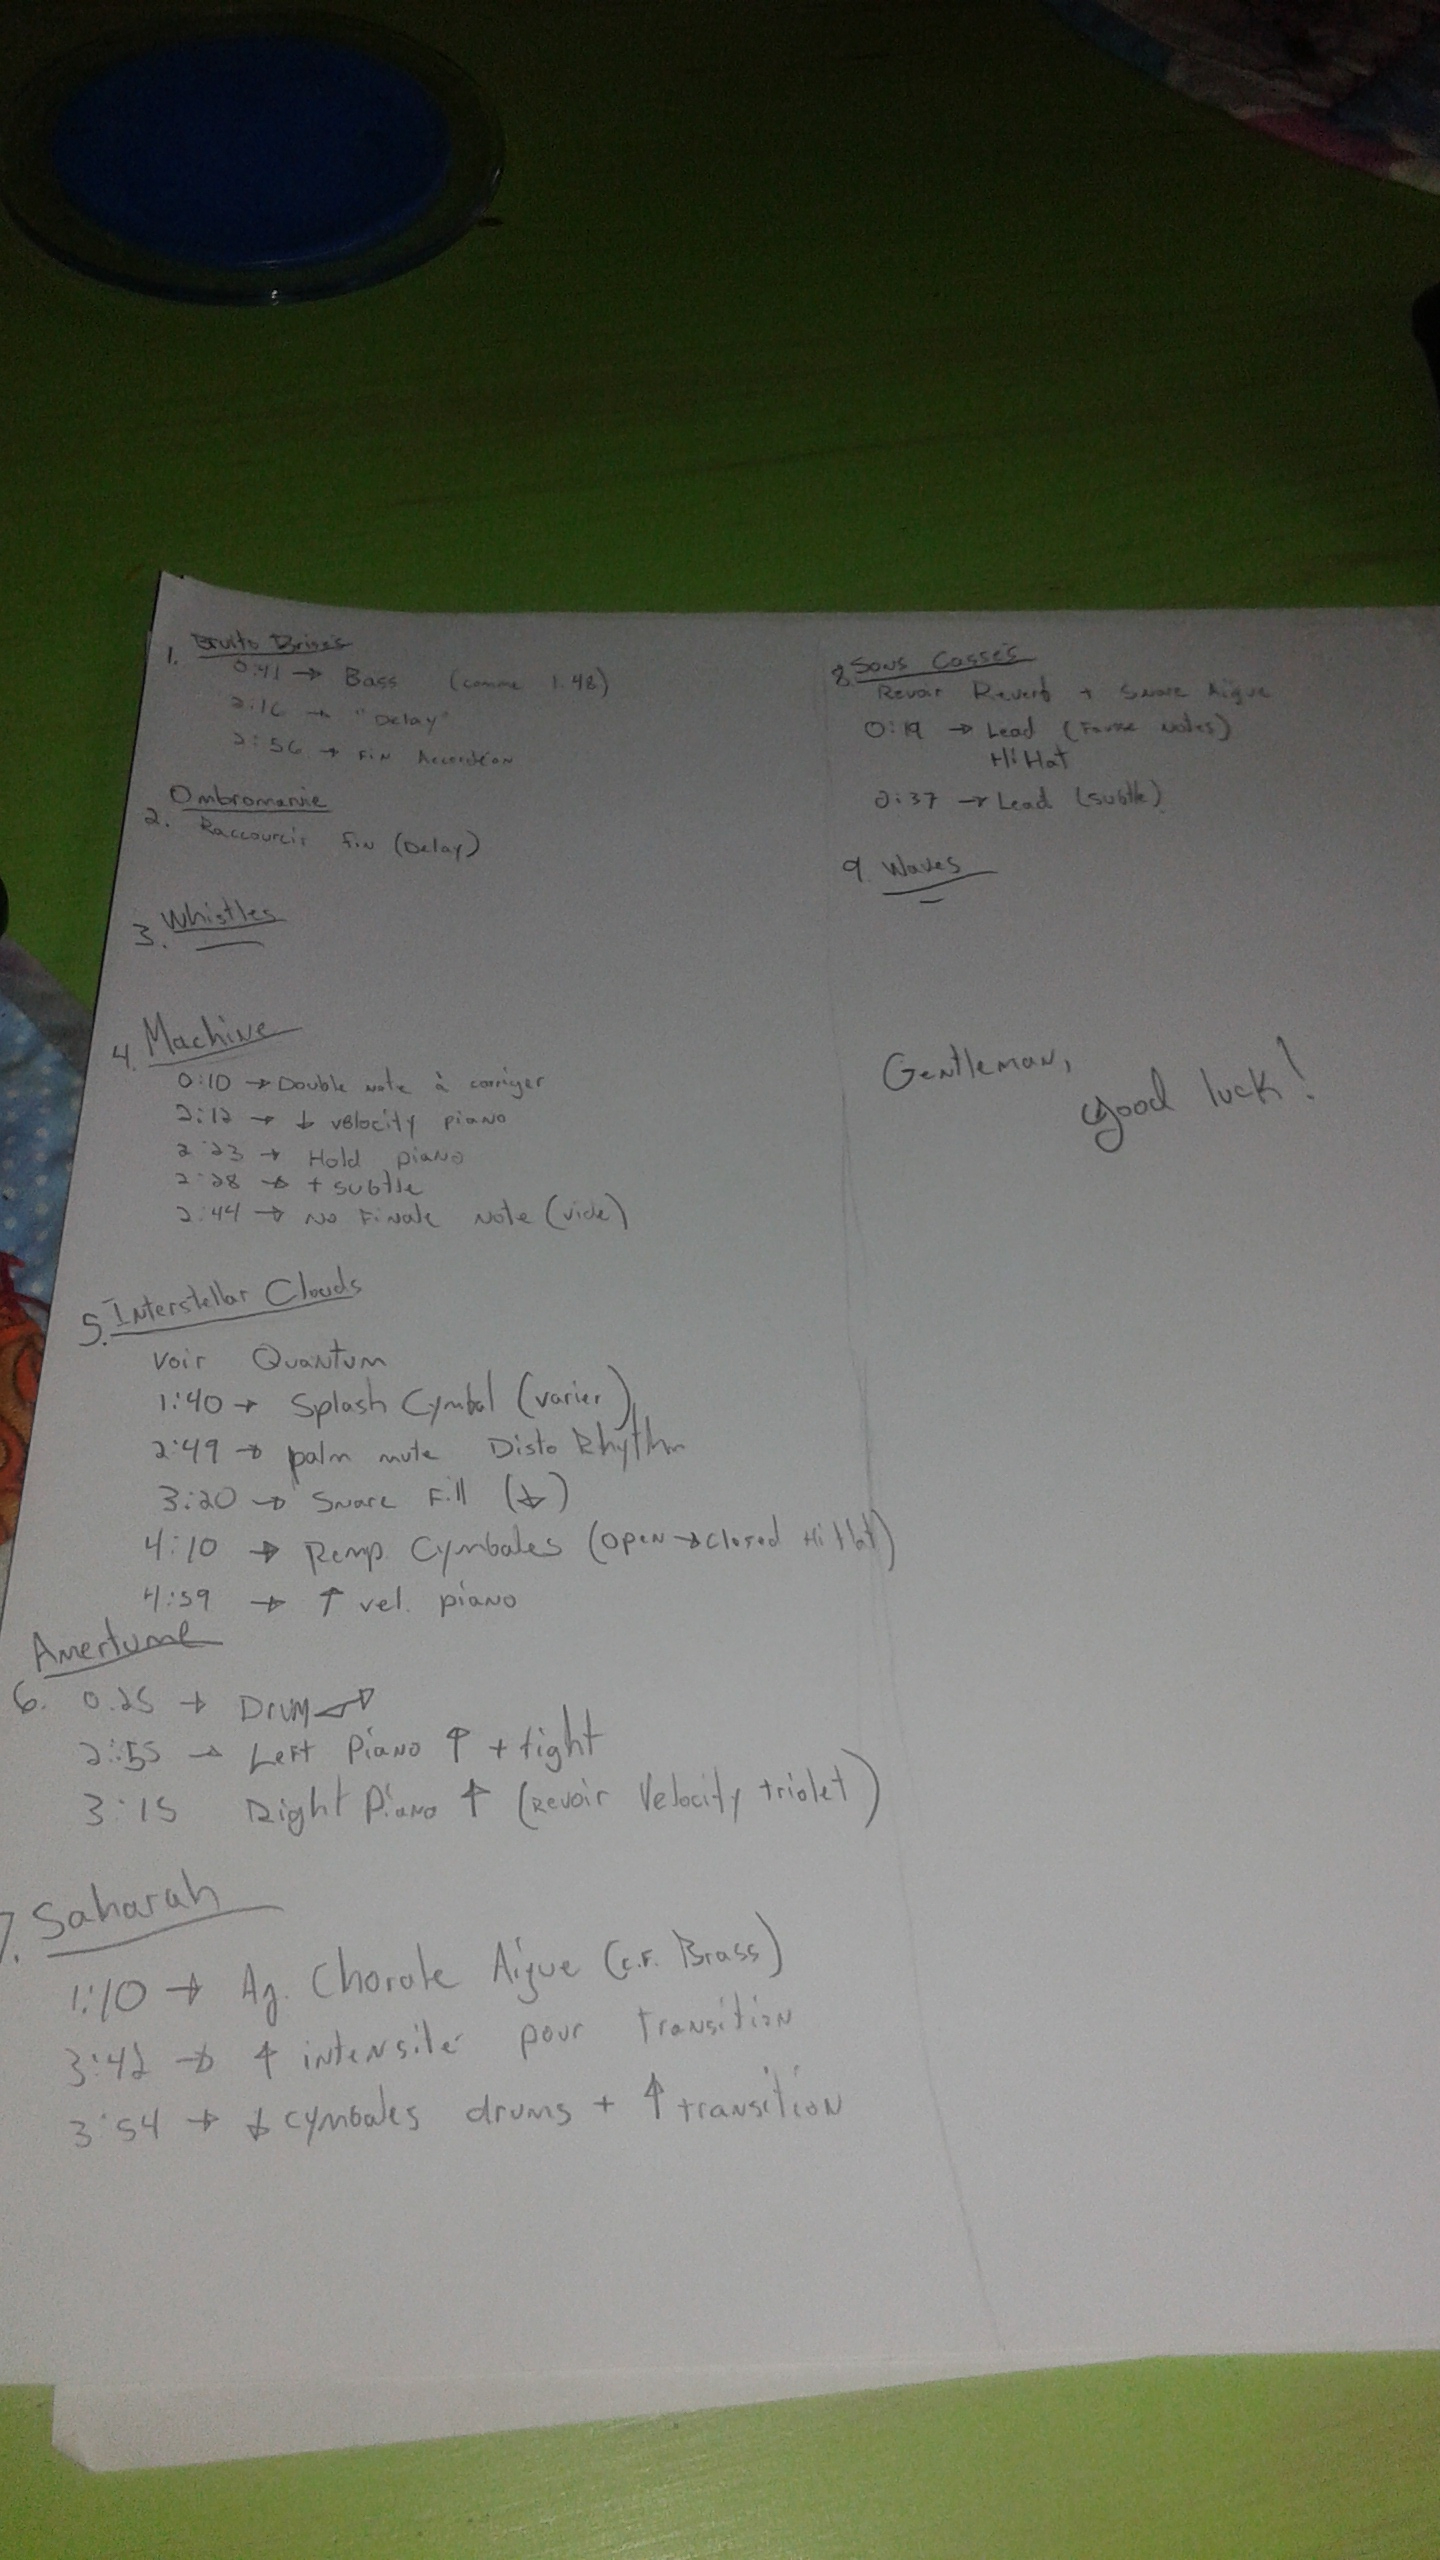 1. Bruits Brisés
0:41 → Bass (comme 1.48)
2:16 → "Delay"
2:56 → Fin Accordéon
Ombromanie
2. Raccourcir fin (Delay)
3. Whistles
4. Machine
0:10 → Double note à corriger
2:12 → ↓ velocity piano
2:23 → Hold piano
2:28 → + subtle
2:44 → No Finale note (vide)
5. Interstellar Clouds
Voir Quantum
1:40 → Splash Cymbal (varier)
2:49 → palm mute Disto Rhythm
3:20 → Snare Fill (↓)
4:10 → Remp. Cymbales (open → closed HiHat)
4:59 → ↑ vel. piano
Amertume
6. 0.25 → Drum
2:55 → Left Piano ↑ + tight
3:15 Right Piano ↑ (Revoir Velocity triolet)
7. Saharah
1:10 → Aj. Chorale Aigue (c.f. Brass)
3:42 → ↑ intensité pour transition
3:54 → ↓ cymbales drums + ↑ transition
8. Sons Cassés
Revoir Reverb + Snare Aigue
0:19 → Lead (Fausse notes)
HiHat
2:37 → Lead (subtle)
9 Waves
Gentleman,
good luck!